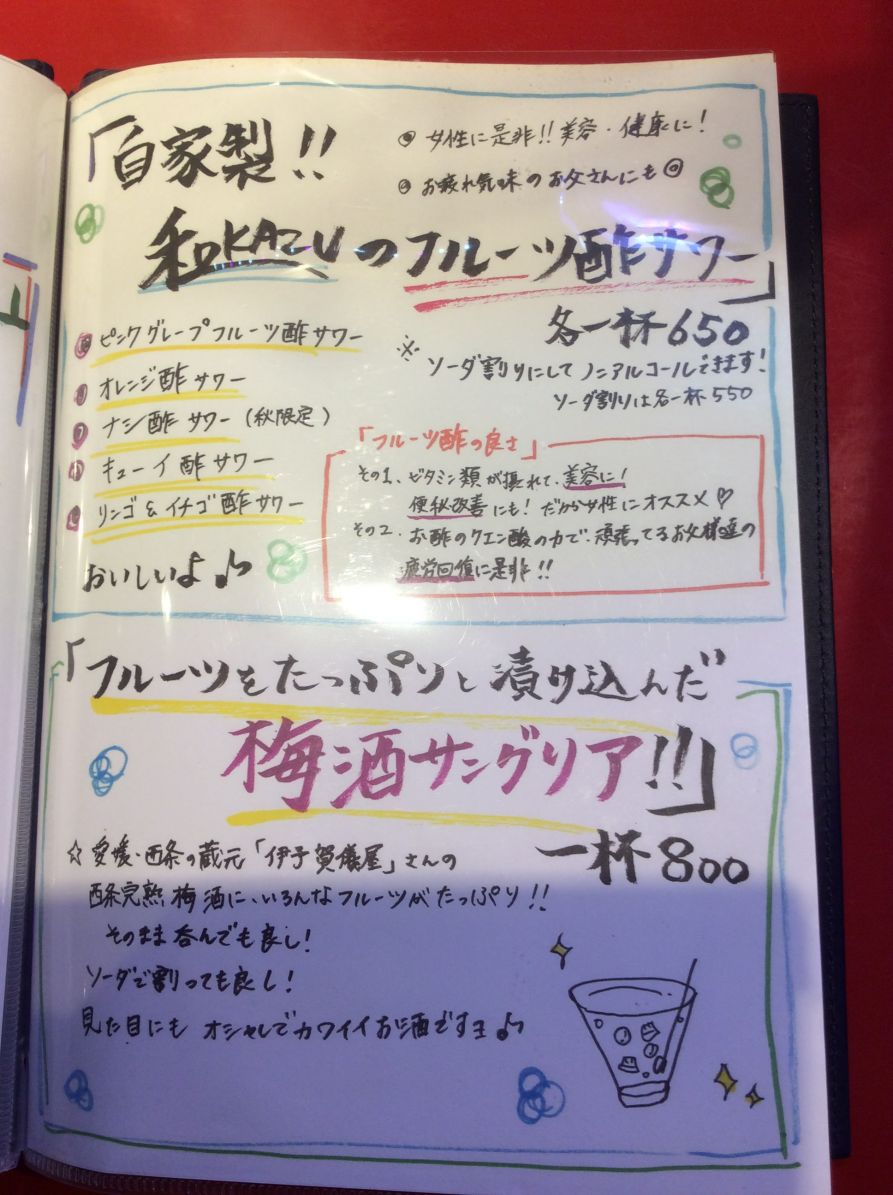 「自家製!!
◎ 女性に是非!! 美容・健康に!
◎ お疲れ気味のお父さんにも◎
和KAZUのフルーツ酢サワー」
各一杯650
ピンクグレープフルーツ酢サワー
オレンジ酢サワー
ナシ酢サワー(秋限定)
キューイ酢サワー
リンゴ&イチゴ酢サワー
おいしいよ♪
※ ソーダ割りにしてノンアルコールできます!
ソーダ割りは各一杯550
「フルーツ酢の良さ」
その1、ビタミン類が摂れて、美容に!
便秘改善にも!だから女性にオススメ♡
その2、お酢のクエン酸の力で、頑張ってるお父様達の
疲労回復に是非!!
「フルーツをたっぷりと漬け込んだ
梅酒サングリア!!」
一杯800
☆ 愛媛・西条の蔵元「伊予賀儀屋」さんの
西条完熟梅酒に、いろんなフルーツがたっぷり!!
そのまま呑んでも良し!
ソーダで割っても良し!
見た目にもオシャレでカワイイお酒ですヨ♪